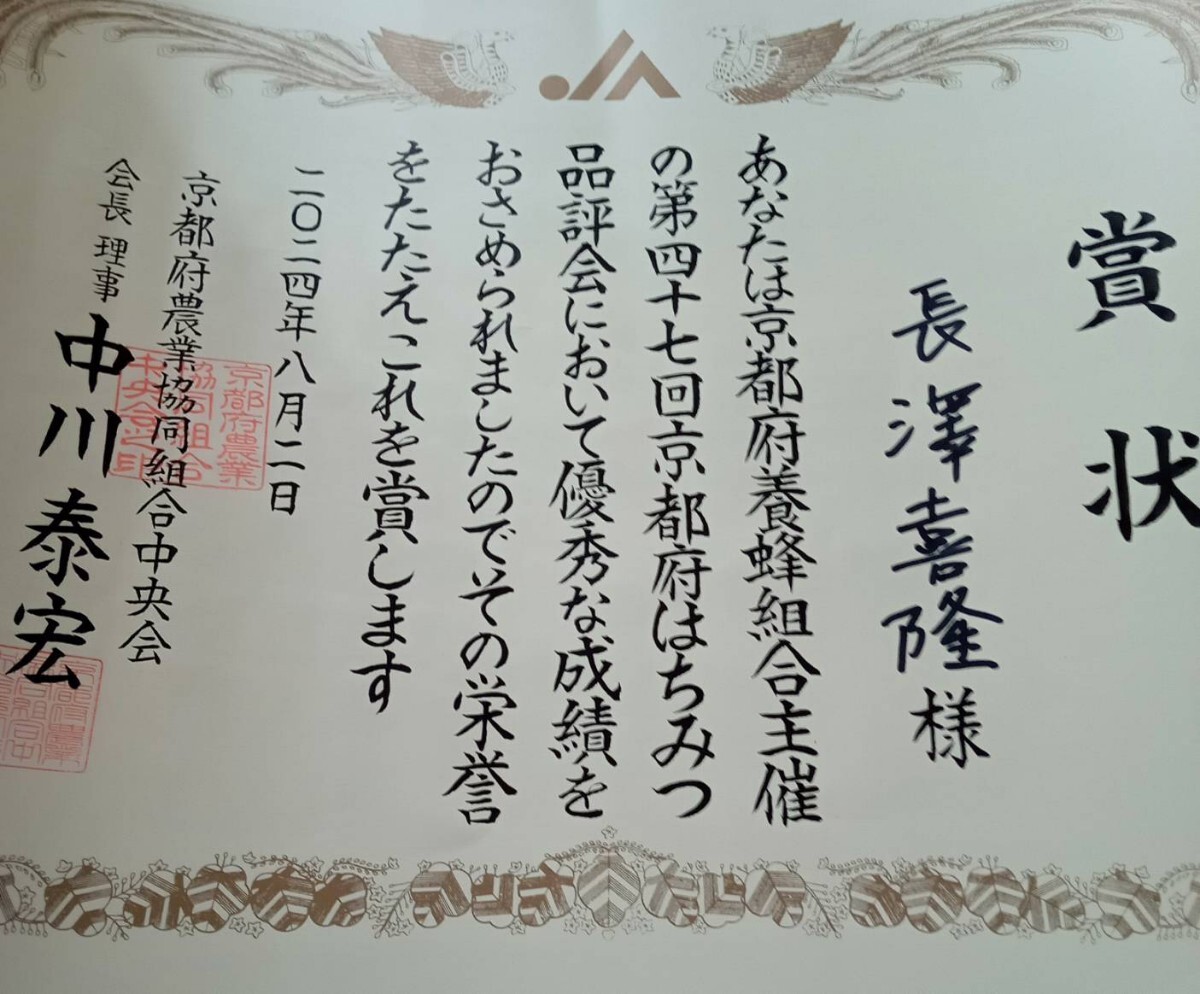 賞状
長澤喜隆様
あなたは京都府養蜂組合主催
の第四十七回京都府はちみつ
品評会において優秀な成績を
おさめられましたのでその栄誉
をたたえこれを賞します
二〇二四年八月二日
京都府農業協同組合中央会
会長理事 中川泰宏
京都府農業
協同組合
中央会之印